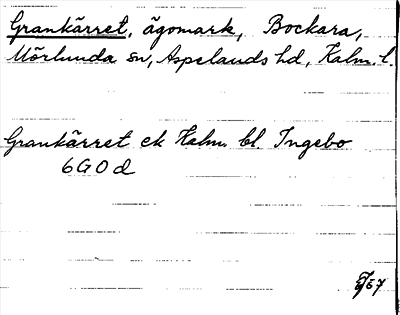 Grankärret, ägomark, Bockara,
Mörlunda sn, Aspelands hd, Kalm. l.
Grankärret ek Kalm. bl. Ingebo
6G0d